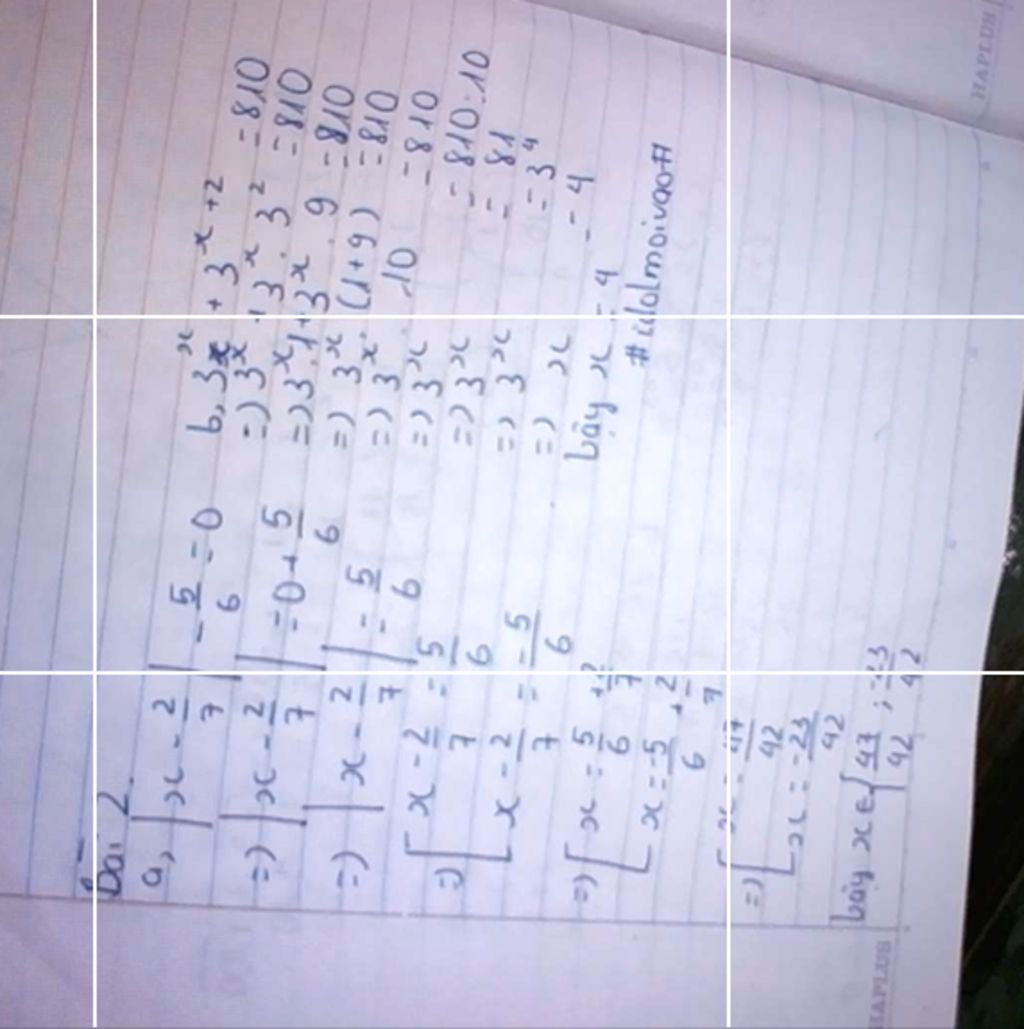 Bài 2
a, |x - 2/7| - 5/6 = 0
=) |x - 2/7| = 0 + 5/6
=) |x - 2/7| = 5/6
=) [x - 2/7 = 5/6
[x - 2/7 = -5/6
=) [x = 5/6 + 2/7
[x = -5/6 + 2/7
=) [x = 47/42
[x = -23/42
vậy x ∈ {47/42 ; -23/42
b, 3^x + 3^x+2 = 810
=) 3^x + 3^x . 3^2 = 810
=) 3^x . 1 + 3^x . 9 = 810
=) 3^x . (1 + 9) = 810
=) 3^x . 10 = 810
=) 3^x = 810 : 10
=) 3^x = 81
=) 3^x = 3^4
=) x = 4
vậy x = 4
HAPLUS
HAPLUS